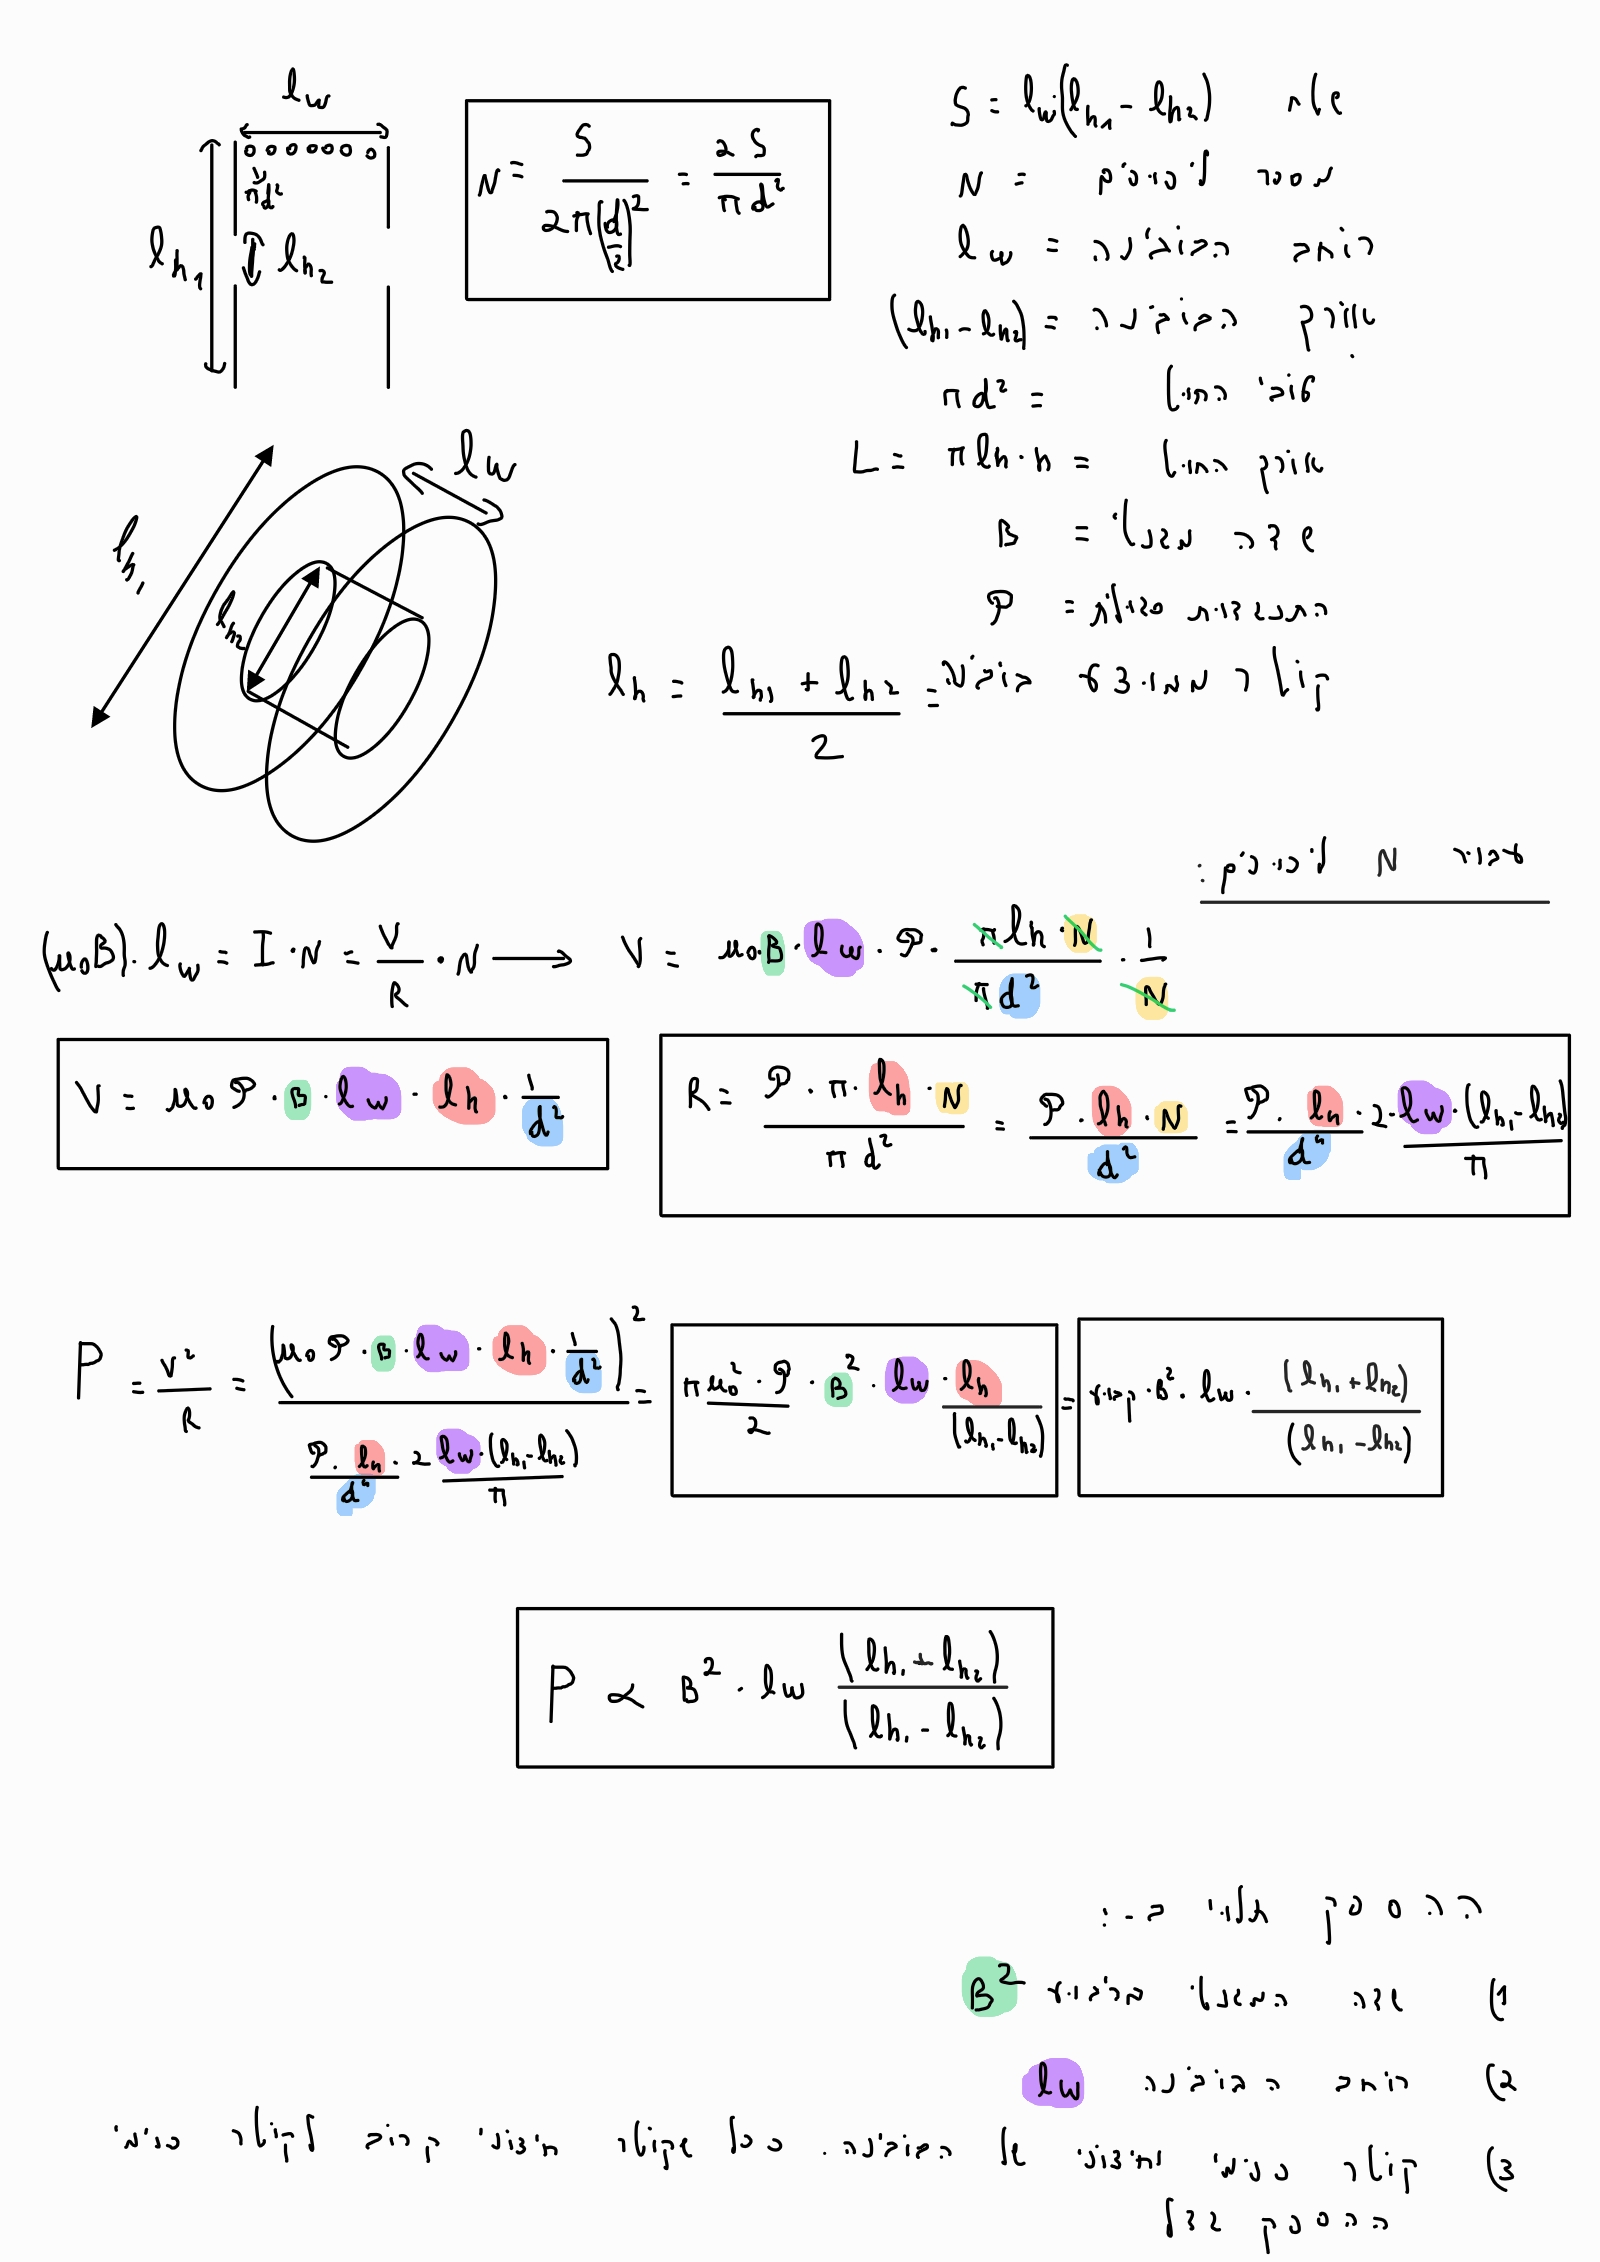 l_w
πd²
l_h₁
l_h₂
N = S / 2π(d/2)² = 2S / πd²
S = l_w(l_h₁ - l_h₂) שטח
N = מספר ליפופים
l_w = רוחב הבובינה
(l_h₁ - l_h₂) = אורך הבובינה
πd² = עובי החוט
L = πl_h·n = אורך החוט
B = שדה מגנטי
𝒫 = התנגדות סגולית
l_h = (l_h₁ + l_h₂) / 2 = קוטר ממוצע בובינה
l_w
l_h₁
l_h₂
עבור N ליפופים:
(μ₀B)·l_w = I·N = V/R · N → V = μ₀·B·l_w·𝒫· πl_h·N / πd² · 1/N
V = μ₀𝒫·B·l_w·l_h· 1/d²
R = 𝒫·π·l_h·N / πd² = 𝒫·l_h·N / d² = 𝒫·l_h / d⁴ · 2·l_w·(l_h₁-l_h₂) / π
P = V²/R = (μ₀𝒫·B·l_w·l_h· 1/d²)² / (𝒫·l_h / d⁴ · 2 l_w·(l_h₁-l_h₂) / π) = πμ₀²·𝒫 / 2 · B²·l_w· l_h / (l_h₁-l_h₂) = קבוע·B²·l_w· (l_h₁+l_h₂) / (l_h₁-l_h₂)
P ∝ B²·l_w (l_h₁+l_h₂) / (l_h₁-l_h₂)
ההספק תלוי ב-:
1) שדה המגנטי בריבוע B²
2) רוחב הבובינה l_w
3) קוטר פנימי וחיצוני של הבובינה. ככל שקוטר חיצוני קרוב לקוטר פנימי
ההספק גדל